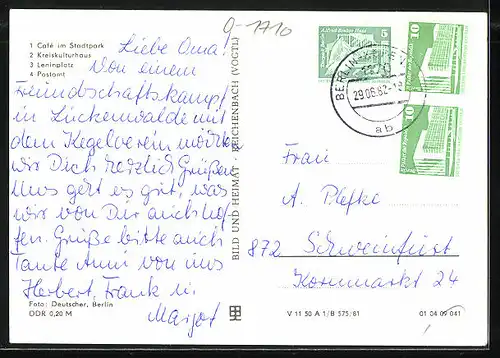 0-1710
1 Café im Stadtpark
2 Kreiskulturhaus
3 Leninplatz
4 Postamt
Liebe Oma!
Von einem
Freundschaftskampf
in Luckenwalde mit
dem Kegelverein möchten
wir Dich herzlich Grüßen
Uns geht es gut, was
wir von Dir auch hof
fen. Grüße bitte auch
Tante Anni von uns
Herbert, Frank u.
Margot
Foto: Deutscher, Berlin
DDR 0,20 M
BILD UND HEIMAT · REICHENBACH (VOGTL)
5
10
10
BERLIN
29.06.82
ab
Frau
A. Plefke
872 Schweinfurt
Kornmarkt 24
V 11 50 A 1/B 575/81
01 04 09 041